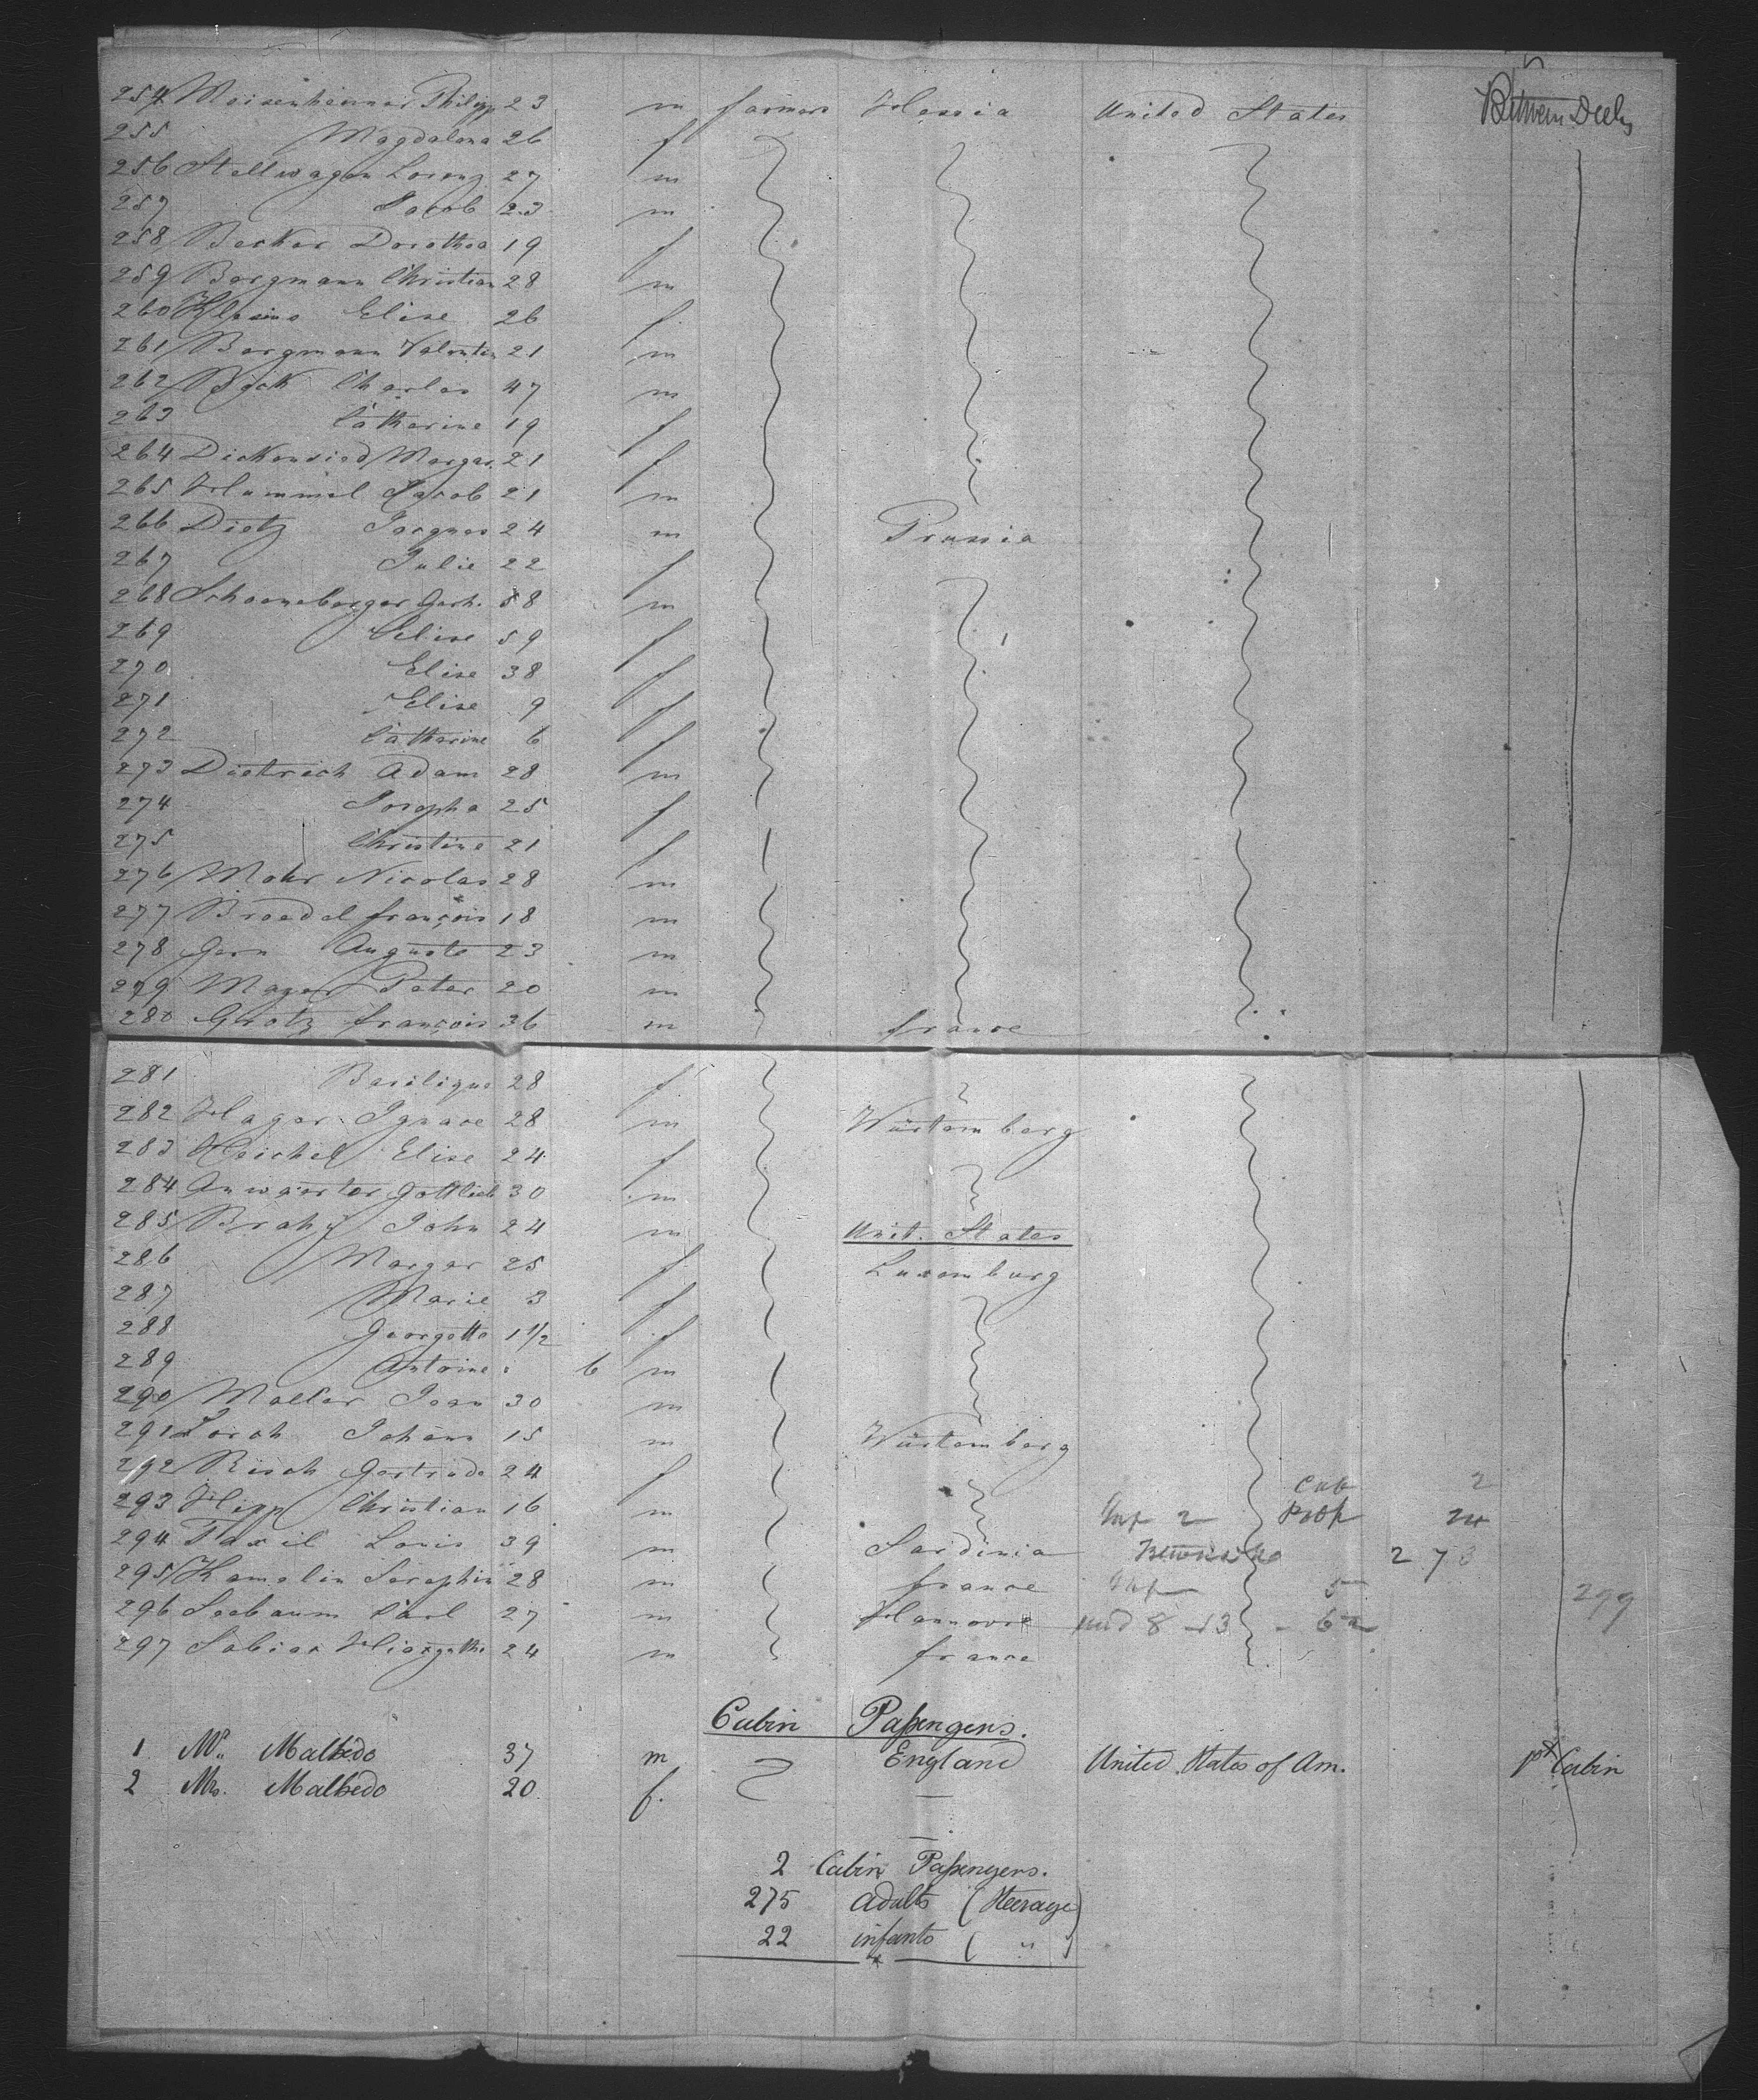 254 Meisenheimer Philipp 23 m farmers Hessia United States Between Decks
255 Magdalena 26 f
256 Stellwagen Lorenz 27 m
257 Jacob 23 m
258 Becker Dorothea 19 f
259 Bergmann Christian 28 m
260 Elise 26 f
261 Bergmann Valentin 21 m
262 Charles 47 m
263 Catharine 19 f
264 Margar. 21 f
265 Hummel Jacob 21 m
266 Dietz Jacques 24 m Prussia
267 Julie 22 f
268 Schoeneberger Gerh. 58 m
269 Elise 59 f
270 Elise 38 f
271 Elise 9 f
272 Catharine 6 f
273 Dietrich Adam 28 m
274 Josepha 25 f
275 Christine 21 f
276 Mohr Nicolas 28 m
277 Broedel françois 18 m
278 Gern Auguste 23 m
279 Mayer Peter 20 m
280 françois 36 m france
281 Basilique 28 f
282 Hager Ignace 28 m Würtemberg
283 Reichel Elise 24 f
284 Anwaerter Gottlieb 30 m
285 Brahy John 24 m Unit. States
286 Margar 25 f Luxemburg
287 Marie 3 f
288 Georgette 1 1/2 f
289 Antoine 6 m
290 Jean 30 m
291 Johann 15 m Würtemberg
292 Risch Gertrude 24 f
Cab 2
293 Hipp Christian 16 m
294 Taxil Louis 39 m Sardinia 273
295 Seraphin 28 m france 5
299
296 Seebaum Carl 27 m Hannovre
297 24 m france
Cabin Passengers.
1 Mr. Malbedo 37 m England United States of Am. 1st Cabin
2 Mrs. Malbedo 20 f.
2 Cabin Passengers.
275 adults (Steerage)
22 infants ( " )